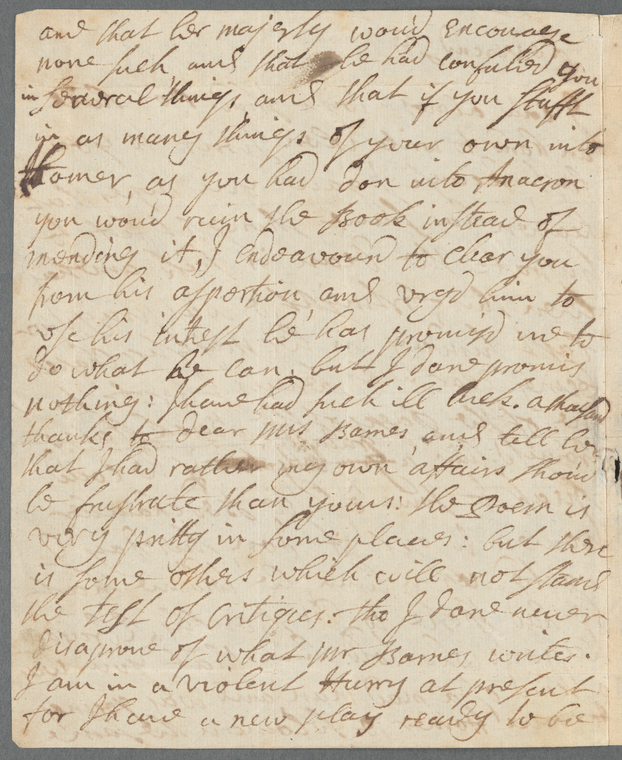 and that her majesty wou'd Encourage
none such and that he had consulted you
in several things and that if you stufft
in as many things of your own into
Homer, as you had don into Anacron
you wou'd ruin the Book instead of
mending it, I endeavourd to clear you
from his assertion and urgd him to
use his intrest he has promisd me to
do what he can. but I dare promis
nothing: I have had such ill luck. a thousand
thanks to dear Mrs Barnes and tell her
that I had rather my own affairs shou'd
be frustrate than yours: the Poem is
very pritty in some places: but there
is some others which will not stand
the test of Critiques: tho I dare never
disaprove of what Mr Barnes writes.
I am in a violent Hurry at present
for I have a new play ready to be